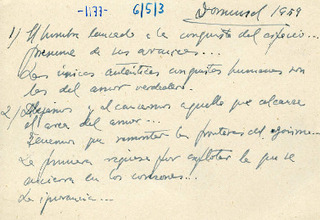 -1177- 6/5/3 Domund 1959
1) El hombre lanzado a la conquista del espacio...
presume de sus avances...
Las únicas auténticas conquistas humanas son
las del amor verdadero.
2) y el cansarnos aquello que alcanza
el área del amor...
Tenemos que remontar las fronteras del egoísmo...
La primera riqueza por explotar la que se
encierra en los corazones...
La ignorancia...